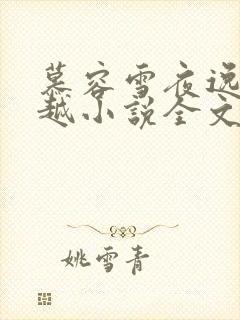 慕容雪夜逸
越小說全文
姚雪青